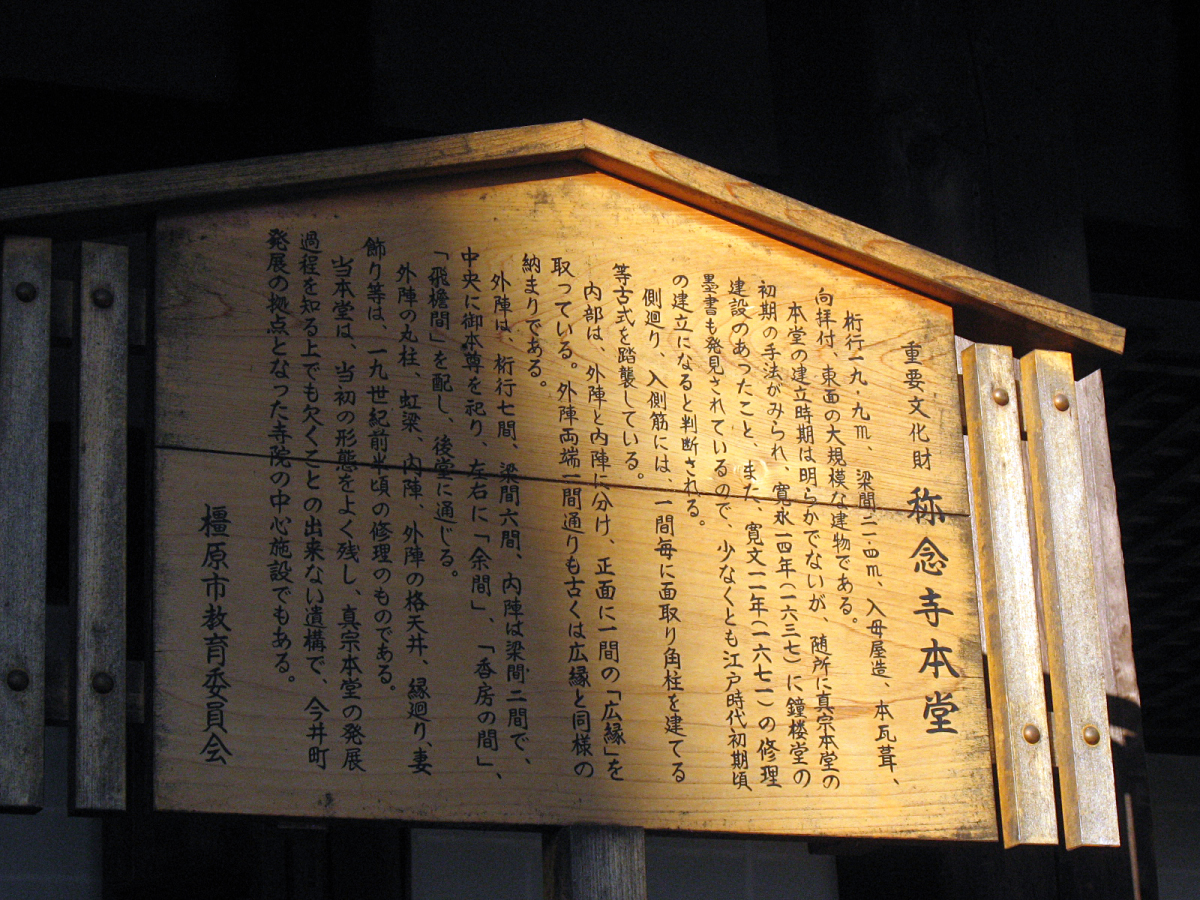 重要文化財 称念寺本堂
桁行一九・九m、梁間二一・四m、入母屋造、本瓦葺、
向拝付、東面の大規模な建物である。
本堂の建立時期は明らかでないが、随所に真宗本堂の
初期の手法がみられ、寛永一四年(一六三七)に鐘楼堂の
建設のあったこと、また、寛文一一年(一六七一)の修理
墨書も発見されているので、少なくとも江戸時代初期頃
の建立になると判断される。
側廻り、入側筋には、一間毎に面取り角柱を建てる
等古式を踏襲している。
内部は、外陣と内陣に分け、正面に一間の「広縁」を
取っている。外陣両端一間通りも古くは広縁と同様の
納まりである。
外陣は、桁行七間、梁間六間、内陣は梁間二間で、
中央に御本尊を祀り、左右に「余間」、「香房の間」、
「飛檐間」を配し、後堂に通じる。
外陣の丸柱、虹梁、内陣、外陣の格天井、縁廻り、妻
飾り等は、一九世紀前半頃の修理のものである。
当本堂は、当初の形態をよく残し、真宗本堂の発展
過程を知る上でも欠くことの出来ない遺構で、今井町
発展の拠点となった寺院の中心施設でもある。
橿原市教育委員会